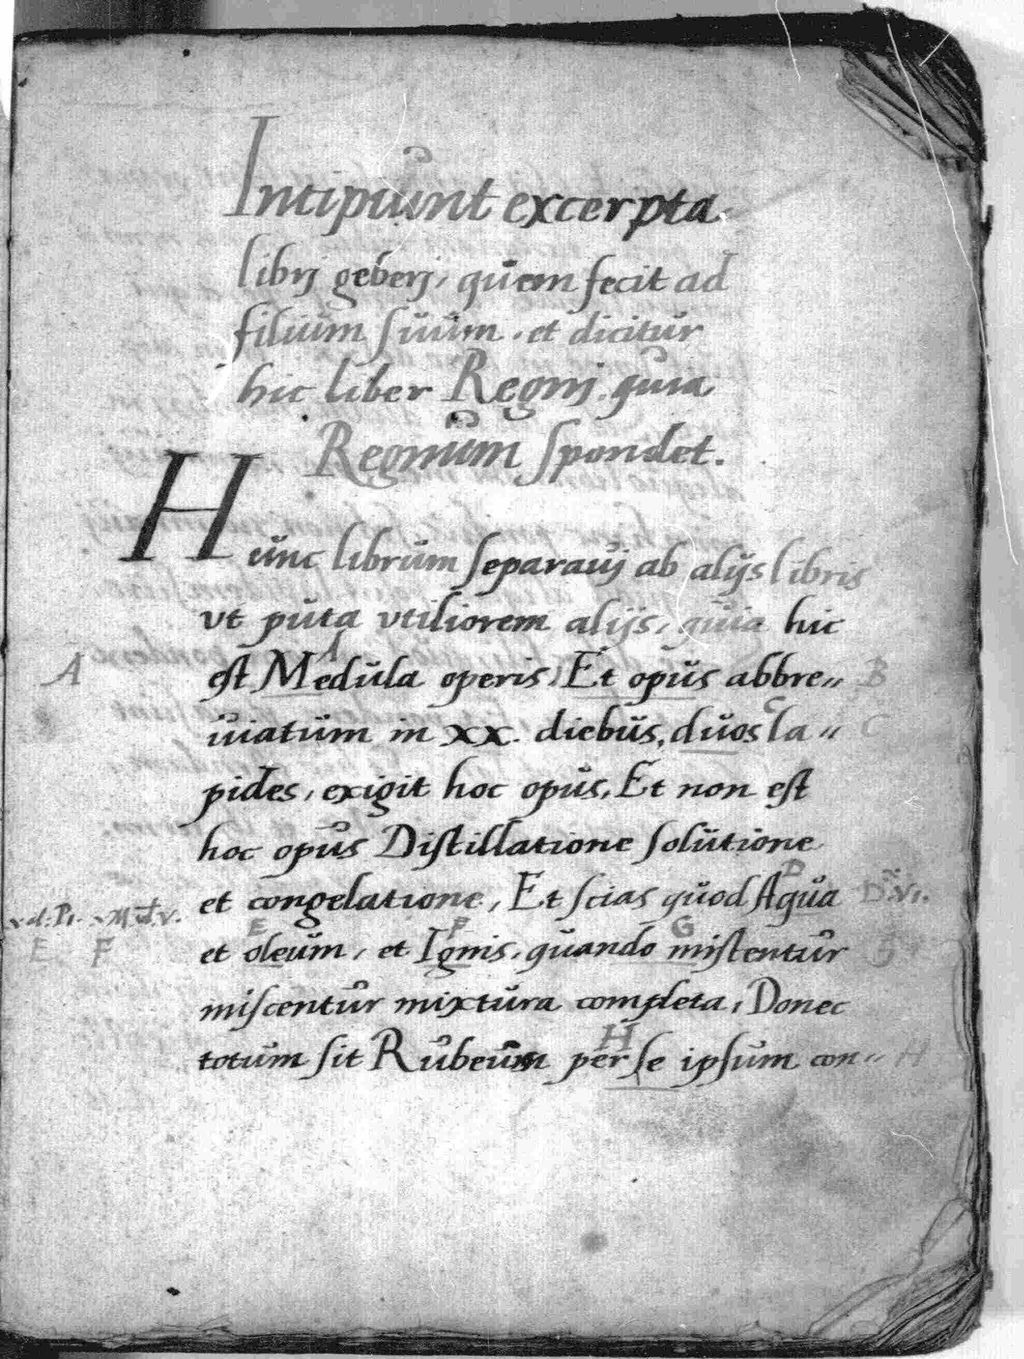 Incipiunt excerpta
librj geberj, quem fecit ad
filium suum. et dicitur
hic liber Regnj. quia
Regnum spondet.
Hunc librum separauj ab alijs libris
vt puta vtiliorem alijs, quia hic
A
A est Medula operis, Et opus abbre〃 B
C
uiatum in xx. diebus, duos la〃 C
pides, exigit hoc opus, Et non est
hoc opus Distillatione solutione
D
et congelatione, Et scias quod Aqua D.vi.
E F G
E F et oleum, et Ignis, quando mistentur G
miscentur mixtura completa, Donec
H
totum sit Rubeum per se ipsum con〃 H